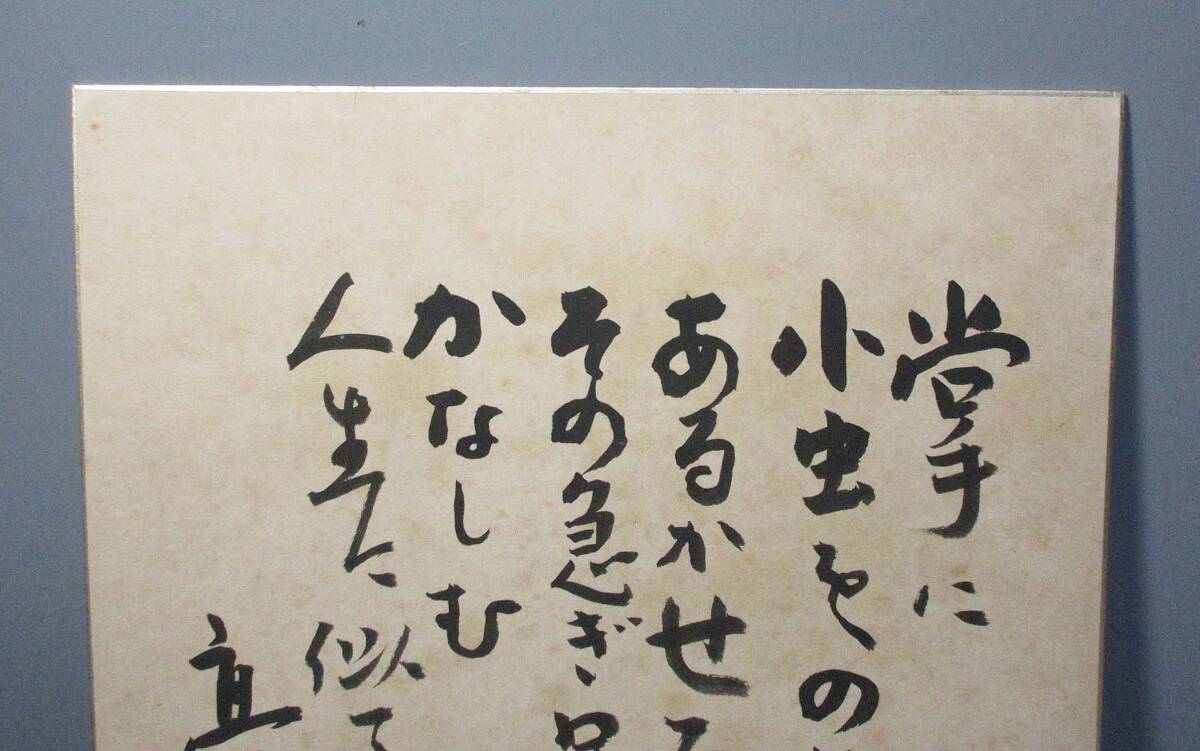 掌に
小虫をの
あるかせて
その急ぎ
かなしむ
人生に似て
直